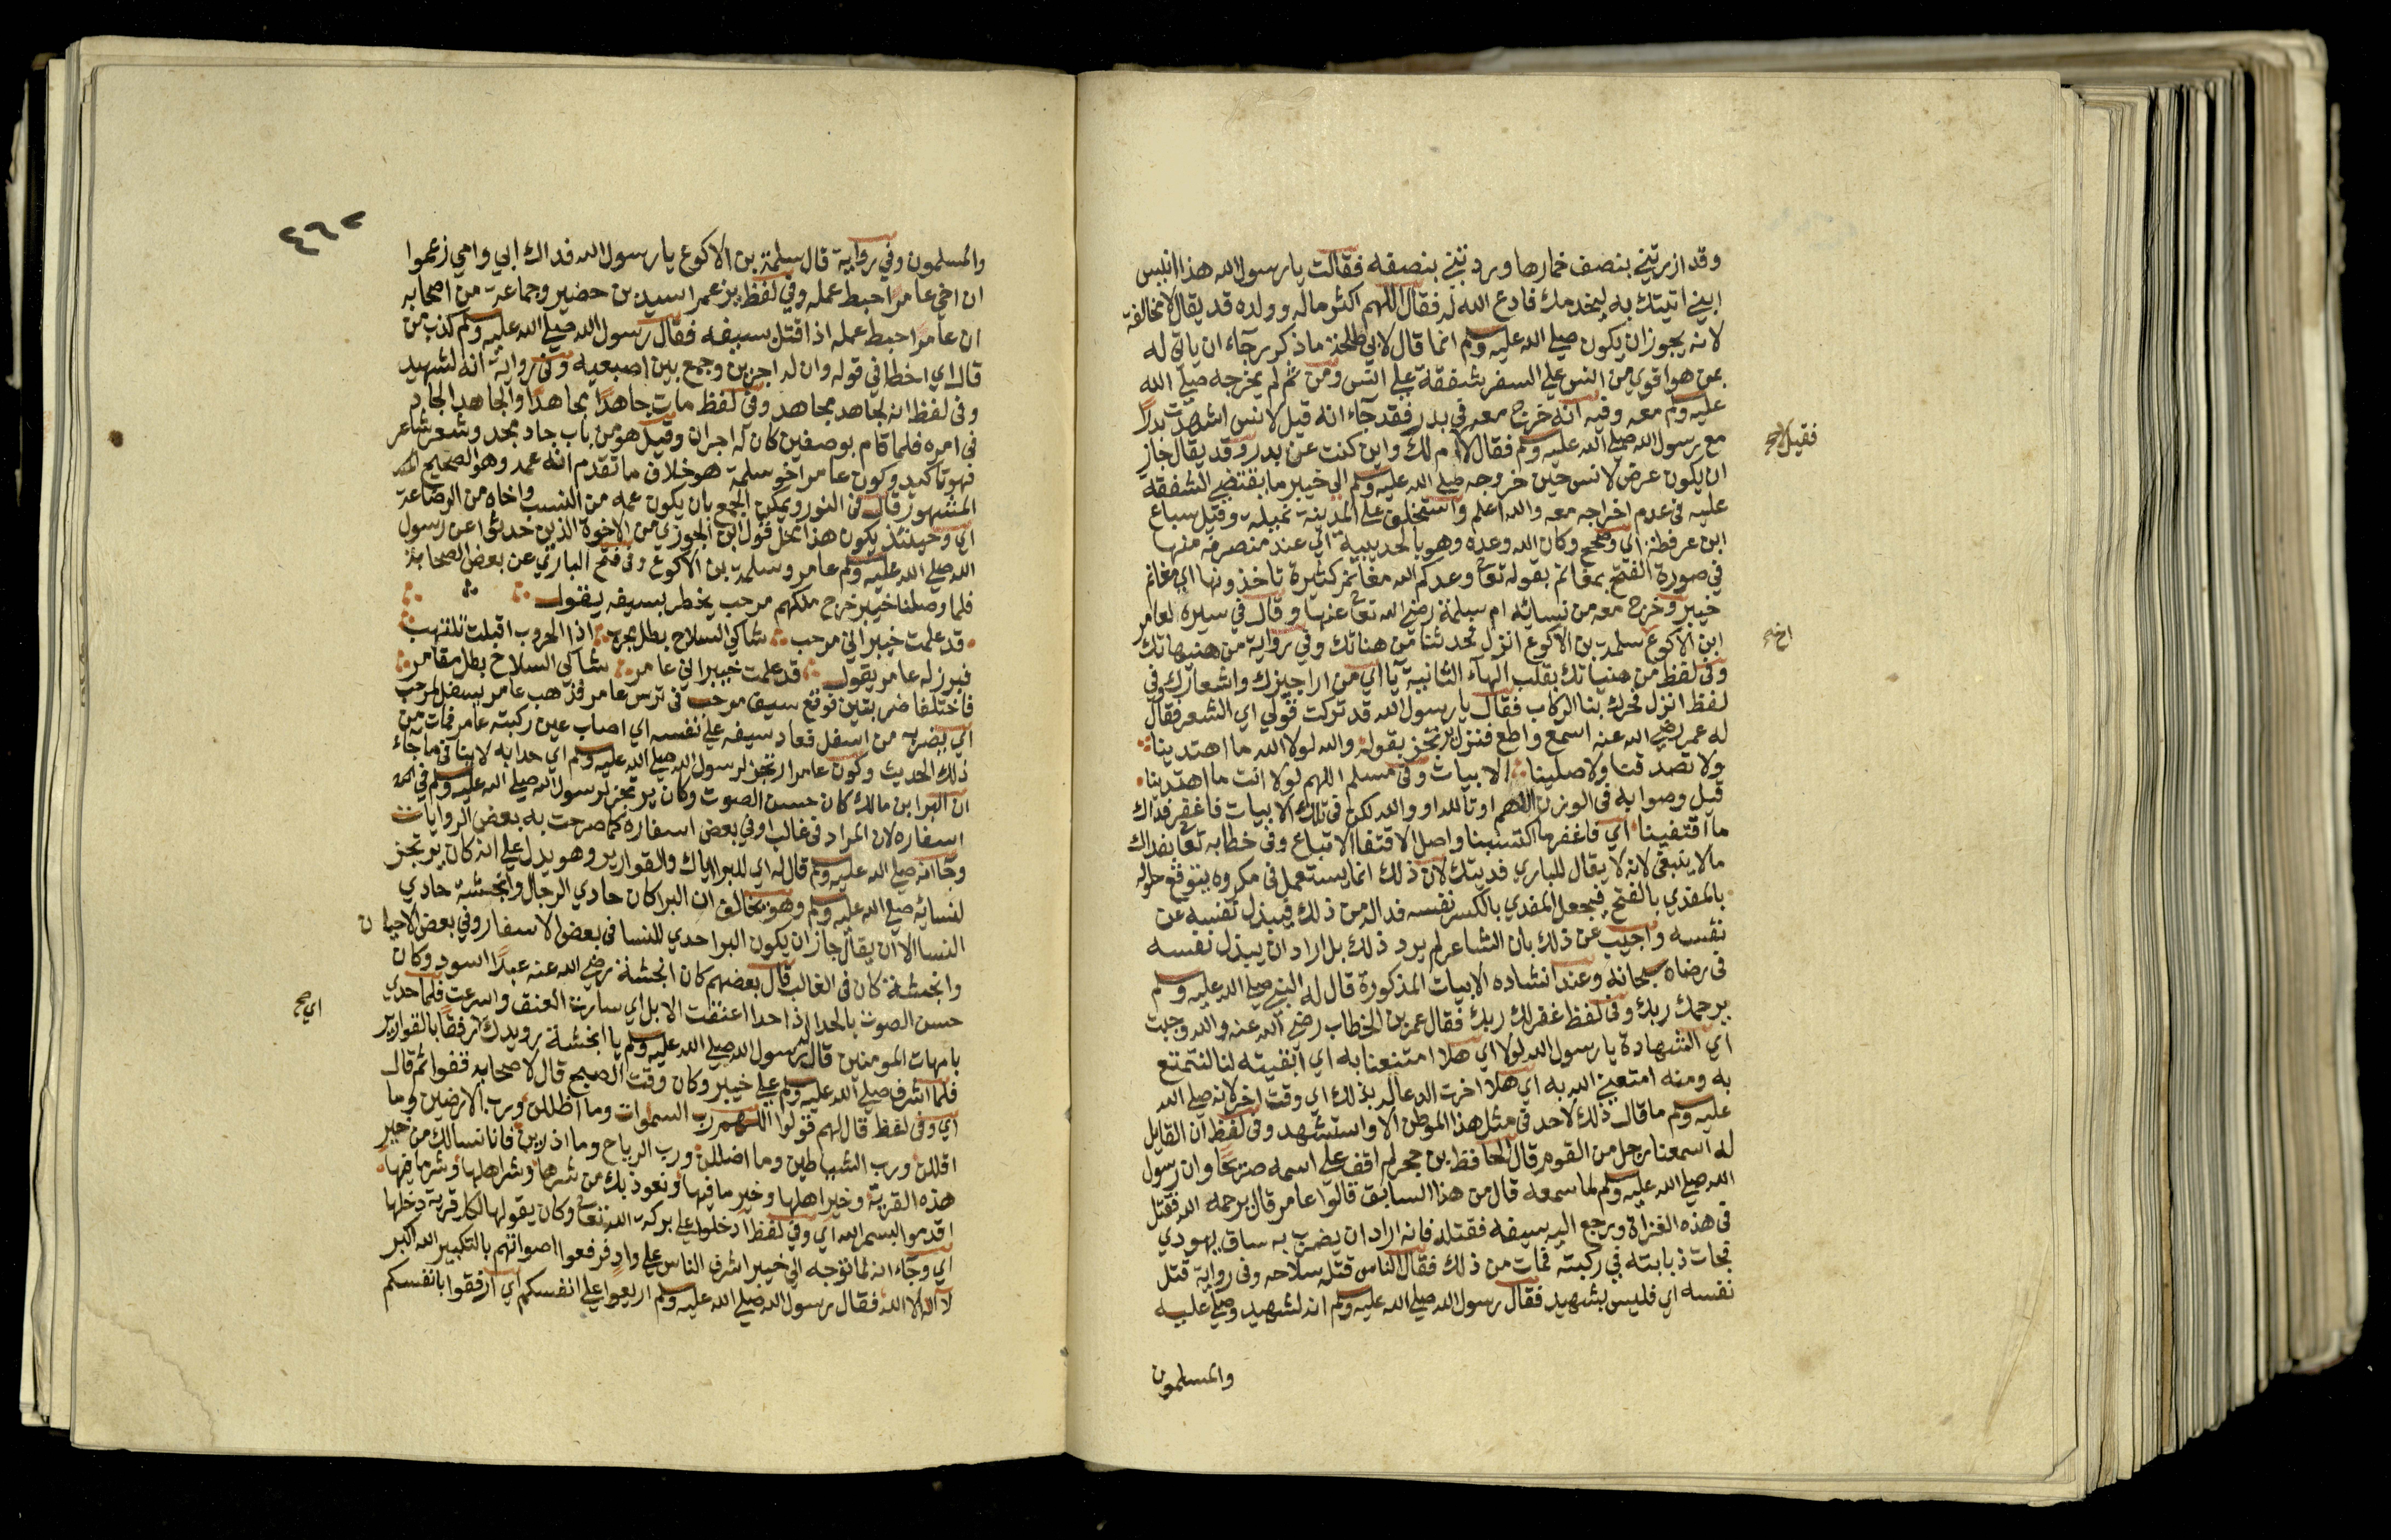 وقد ازرتني بنصف خمارها وردتني بنصفه فقالت يا رسول الله هذا انيس
ابني اتيتك به ليخدمك فادع الله له فقال اللهم اكثر ماله وولده قد يقال لا مخالفة
لانه يجوز ان يكون صلى الله عليه وسلم انما قال لابي طلحة ما ذكر رجاء ان ياتي له
بمن هو اقوي من انس علي السفر شفقة علي انس ومن ثم لم يخرجه صلى الله
عليه وسلم معه وفيه انه خرج معه في بدر فقد جاء انه قيل لانس اشهدت بدرا
مع رسول الله صلى الله عليه وسلم فقال لا ام لك واين كنت عن بدر وقد يقال جاز
فقيل لا صح
ان يكون عرض لانس حين خروجه صلى الله عليه وسلم الي خيبر ما يقتضي الشفقة
عليه في عدم اخراجه معه والله اعلم واستخلف علي المدينة نميلة وقيل سباع
ابن عرفطة اي وصحح وكان الله وعده وهو بالحديبية اي عند منصرفه منها
في صورة الفتح بمغانم بقوله تعالى وعدكم الله مغانم كثيرة تاخذونها اي مغانم
خيبر وخرج معه من نسائه ام سلمة رضي الله تعالى عنها وقال في سيره لعامر
ابن الاكوع سلمة بن الاكوع انزل فحدثنا من هناتك وفي رواية من هنيهاتك
اخي
وفي لفظ من هنياتك بقلب الهاء الثانية يا اي من اراجيزك واشعارك وفي
لفظ انزل فحرك بنا الركاب فقال يا رسول الله قد تركت قولي اي الشعر فقال
له عمر رضي الله عنه اسمع واطع فنزل يرتجز بقوله والله لولا الله ما اهتدينا
ولا تصدقنا ولا صلينا الابيات وفي مسلم اللهم لولا انت ما اهتدينا
قيل وصوابه في الوزن لاهم او تالله او والله لكن في تلك الابيات فاغفر فداك
ما اقتفينا اي فاغفر ما اكتسبنا واصل الاقتفا الاتباع وفي خطابه تعالى بفداك
ما لا ينبغي لانه لا يقال للباري فديتك لان ذلك انما يستعمل في مكروه يتوقع حلوله
بالمفدي بالفتح فيجعل المفدي بالكسر نفسه فداله من ذلك فيبذل نفسه عن
نفسه واجيب عن ذلك بان الشاعر لم يرد ذلك بل اراد ان يبذل نفسه
في رضاه سبحانه وعند انشاده الابيات المذكورة قال له النبي صلى الله عليه وسلم
يرحمك ربك وفي لفظ غفر لك ربك فقال عمر بن الخطاب رضي الله عنه والله وجبت
اي الشهادة يا رسول الله لولا اي هلا امتنعنا به اي ابقيته لنا لنتمتع
به ومنه امتعني الله به اي هلا اخرت الدعا له بذلك اي وقت اخر لانه صلى الله
عليه وسلم ما قال ذلك لاحد في مثل هذا الموطن الا واستشهد وفي لفظ ان القايل
له اسمعنا رجل من القوم قال الحافظ بن حجر لم اقف علي اسمه صريحا وان رسول
الله صلى الله عليه وسلم لما سمعه قال من هذا السابق قالوا عامر قال يرحمه الله فقتل
في هذه الغزاة ورجع اليه سيفه فقتله فانه اراد ان يضرب به ساق يهودي
فجات ذبابته في ركبته فمات من ذلك فقال الناس قتله سلاحه وفي رواية قتل
نفسه اي فليس بشهيد فقال رسول الله صلى الله عليه وسلم انه لشهيد وصلي عليه
والمسلمون
٤٦٢
والمسلمون وفي رواية قال سلمة بن الاكوع يا رسول الله فداك ابي وامي زعموا
ان اخي عامرا احبط عمله وفي لفظ يزعم اسيد بن حضير وجماعة من اصحابه
ان عامرا حبط عمله اذا قتل بسيفه فقال رسول الله صلى الله عليه وسلم كذب من
قال اي اخطا في قوله وان له اجرين وجمع بين اصبعيه وفي رواية انه لشهيد
وفي لفظ انه لجاهد مجاهد وفي لفظ مات جاهدا مجاهدا والجاهد الجاد
في امره فلما قام بوصفين كان له اجران وقيل هو من باب جاد مجد وشعر شاعر
فهو تاكيد وكون عامر اخو سلمة هو خلاف ما تقدم انه عمه وهو الصحيح
المشهور قال في النور ويمكن الجمع بان يكون عمه من النسب واخاه من الرضاعة
اي وحينئذ يكون هذا محل قول ابن الجوزي من الاخوة الذين حدثوا عن رسول
الله صلى الله عليه وسلم عامر وسلمة بن الاكوع وفي فتح الباري عن بعض الصحابة
فلما وصلنا خيبر خرج ملكهم مرحب يخطر بسيفه يقول
قد علمت خيبر اني مرحب شاكي السلاح بطل مجرب اذا الحروب اقبلت تلتهب
فبرز له عامر يقول قد علمت خيبر اني عامر شاكي السلاح بطل مغامر
فاختلفا ضربتين فوقع سيف مرحب في ترس عامر فذهب عامر يسفل لمرحب
اي يضربه من اسفل فعاد سيفه علي نفسه اي اصاب عين ركبته عامر فمات من
ذلك الحديث وكون عامر ارتجز لرسول الله صلى الله عليه وسلم اي حدا به لا ينافي ما جاء
ان البرا بن مالك كان حسن الصوت وكان يرتجز لرسول الله صلى الله عليه وسلم في
اسفاره لان المراد في غالب او في بعض اسفاره كما صرحت به بعض الروايات
وجا انه صلى الله عليه وسلم قال له اي للبرا اياك والقوارير وهو يدل علي انه كان يرتجز
لنسائه صلى الله عليه وسلم وهو يخالف ان البرا كان حادي الرجال وانجشة حادي
النسا الا ان يقال جاز ان يكون البرا حدي للنسا في بعض الاسفار وفي بعض الاحيان
وانجشة كان في الغالب قال بعضهم كان انجشة رضي الله عنه عبدا اسود وكان
حسن الصوت بالحدا اذا حدا اعتقت الابل اي سارت العنق واسرعت فلما حدي
اي صح
بامهات المومنين قال رسول الله صلى الله عليه وسلم يا انجشة رويدك رفقا بالقوارير
فلما اشرف صلى الله عليه وسلم علي خيبر وكان وقت الصبح قال لاصحابه قفوا ثم قال
اي وفي لفظ قال لهم قولوا اللهم رب السموات وما اظللن ورب الارضين وما
اقللن ورب الشياطين وما اضللن ورب الرياح وما اذرين فانا نسالك من خير
هذه القرية وخير اهلها وخير ما فيها ونعوذ بك من شرها وشر اهلها وشر ما فيها
اقدموا بسم الله اي وفي لفظ ادخلوا علي بركة الله تعالى وكان يقولها لكل قرية دخلها
اي وجاء انه لما توجه الي خيبر اشرف الناس علي واد فرفعوا اصواتهم بالتكبير الله اكبر
لا اله الا الله فقال رسول الله صلى الله عليه وسلم اربعوا علي انفسكم اي ارفقوا بانفسكم